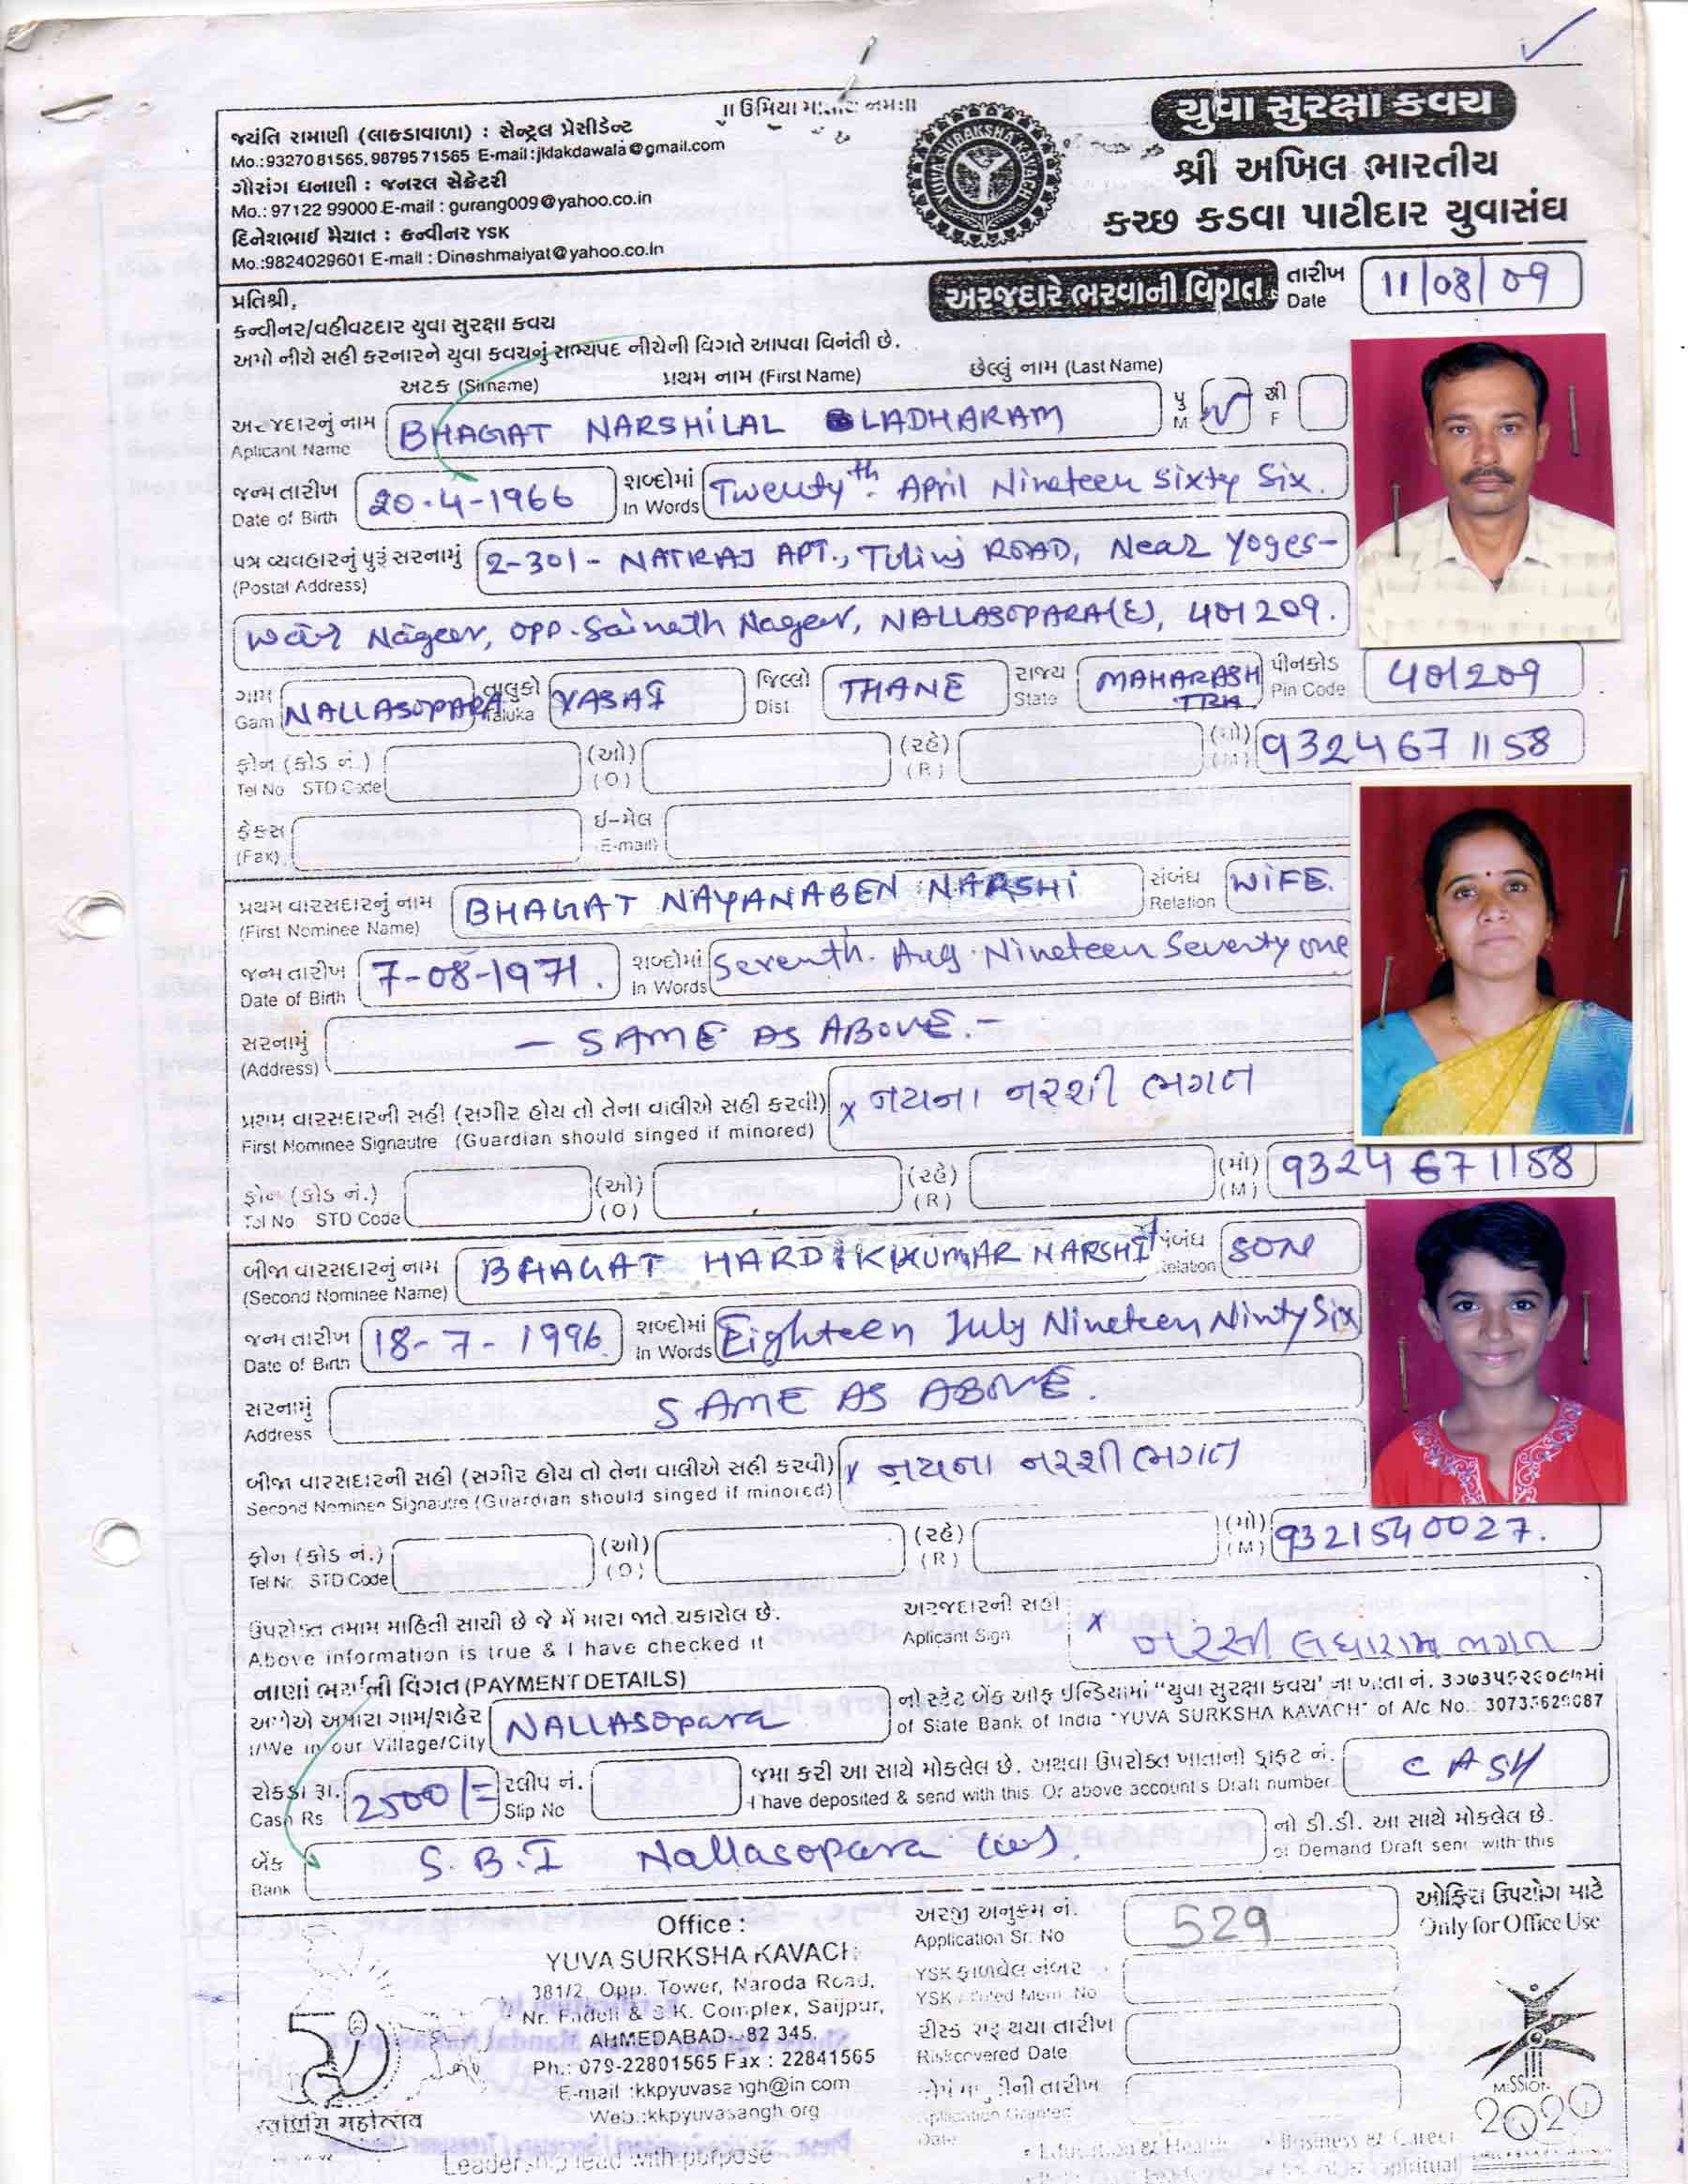 જયંતિ રામાણી (લાકડાવાળા) : સેન્ટ્રલ પ્રેસીડેન્ટ
Mo.:9327081565, 9879571565 E-mail:jklakdawala@gmail.com
ગૌરાંગ ધનાણી : જનરલ સેક્રેટરી
Mo.: 97122 99000 E-mail : gurang009@yahoo.co.in
દિનેશભાઈ મૈયાત : કન્વીનર YSK
Mo.:9824029601 E-mail : Dineshmaiyat@yahoo.co.in
॥ ઉમિયા નમઃ॥
YUVA SURAKSHA KAVACH
યુવા સુરક્ષા કવચ
શ્રી અખિલ ભારતીય
કચ્છ કડવા પાટીદાર યુવાસંઘ
અરજદારે ભરવાની વિગત
તારીખ
Date
11/08/09
પ્રતિશ્રી,
કન્વીનર/વહીવટદાર યુવા સુરક્ષા કવચ
અમો નીચે સહી કરનારને યુવા કવચનું સભ્યપદ નીચેની વિગતે આપવા વિનંતી છે.
અટક (Sirname) પ્રથમ નામ (First Name) છેલ્લું નામ (Last Name)
અરજદારનું નામ
Aplicant Name
BHAGAT NARSHILAL LADHARAM
પુ M સ્ત્રી F
જન્મ તારીખ
Date of Birth
20-4-1966
શબ્દોમાં
In Words
Twenty th. April Nineteen Sixty Six.
પત્ર વ્યવહારનું પુરૂં સરનામું
(Postal Address)
2-301- NATRAJ APT., Tulinj ROAD, Near Yoges-
war Nageer, opp. Sainath Nager, NALLASOPARA(E), 401209.
ગામ
Gam
NALLASOPARA
તાલુકો
Taluka
VASAI
જિલ્લો
Dist.
THANE
રાજ્ય
State
MAHARASHTRA
પીનકોડ
Pin Code
401209
ફોન (કોડ નં.)
Tel No STD Code
(ઓ)
(O)
(રહે)
(R)
(મો)
(M)
9324671158
ફેકસ
(Fax)
ઈ-મેલ
(E-mail)
પ્રથમ વારસદારનું નામ
(First Nominee Name)
BHAGAT NAYANABEN NARSHI
સંબંધ
Relation
WIFE.
જન્મ તારીખ
Date of Birth
7-08-1971.
શબ્દોમાં
In Words
Seventh. Aug. Nineteen Seventy one
સરનામું
(Address)
- SAME AS ABOVE. -
પ્રથમ વારસદારની સહી (સગીર હોય તો તેના વાલીએ સહી કરવી)
First Nominee Signautre (Guardian should singed if minored)
x નયના નરશી ભગત
ફોન (કોડ નં.)
Tel No STD Code
(ઓ)
(O)
(રહે)
(R)
(મો)
(M)
9324671158
બીજા વારસદારનું નામ
(Second Nominee Name)
BHAGAT HARDIKKUMAR NARSHI
સંબંધ
Relation
SON
જન્મ તારીખ
Date of Birth
18-7-1996
શબ્દોમાં
In Words
Eighteen July Nineteen Ninty Six
સરનામું
Address
SAME AS ABOVE.
બીજા વારસદારની સહી (સગીર હોય તો તેના વાલીએ સહી કરવી)
Second Nominee Signautre (Guardian should singed if minored)
x નયના નરશી ભગત
ફોન (કોડ નં.)
Tel Nc STD Code
(ઓ)
(O)
(રહે)
(R)
(મો)
(M)
9321540027.
ઉપરોક્ત તમામ માહિતી સાચી છે જે મેં મારા જાતે ચકાસેલ છે.
Above information is true & I have checked it
અરજદારની સહી
Aplicant Sign
x નરસી લધારામ ભગત
નાણાં ભર્યાની વિગત (PAYMENT DETAILS)
અમોએ અમારા ગામ/શહેર
I/We in our Village/City
NALLASOpara
નો સ્ટેટ બેંક ઓફ ઈન્ડિયામાં "યુવા સુરક્ષા કવચ" ના ખાતા નં.
of State Bank of India "YUVA SURKSHA KAVACH" of A/c No.:
રોકડા રૂા.
Cash Rs
2500/-
સ્લીપ નં.
Slip No
જમા કરી આ સાથે મોકલેલ છે. અથવા ઉપરોક્ત ખાતાનો ડ્રાફટ નં.
I have deposited & send with this. Or above account's Draft number.
CASH
બેંક
Bank
S.B.I Nallasopara (w).
નો ડી.ડી. આ સાથે મોકલેલ છે.
of Demand Draft sent with this
Office :
YUVA SURKSHA KAVACH
381/2, Opp. Tower, Naroda Road,
Nr. Fadeli & S.K. Complex, Saijpur,
AHMEDABAD-82 345.
Ph.: 079-22801565 Fax : 22841565
E-mail :kkpyuvasangh@in.com
Web.:kkpyuvasangh.org
Leadership lead with purpose
અરજી અનુક્રમ નં.
Application Sr. No
529
ઓફિસ ઉપયોગ માટે
Only for Office Use
YSK ફાળવેલ નંબર
YSK Mem. No
રીસ્ક શરૂ થયા તારીખ
Riskcovered Date
તારીખ
Application Granted
Date
MISSION
2020
• Education & Health • Business & Career